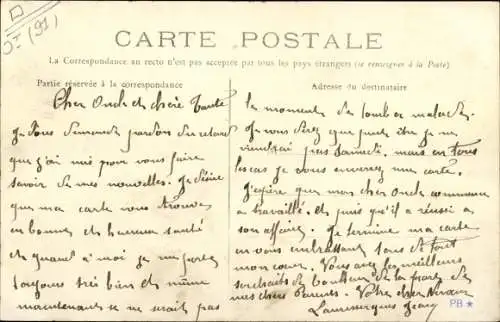 D
DI (91)
CARTE POSTALE
La Correspondance au recto n'est pas acceptée par tous les pays étrangers (se renseigner à la Poste)
Partie réservée à la correspondance
Adresse du destinataire
Cher Oncle et chère Tante
Je vous demande pardon du retard
que j'ai mis pour vous faire
savoir de mes nouvelles. Je désire
que ma carte vous trouve
en bonne et heureuse santé
et quant à moi je me porte
toujours très bien et même
maintenant ce ne serait pas
le moment de tomber malade.
Je vous direz que peut être je ne
viendrai pas samedi. mais en tous
les cas je vous enverrez une carte.
J'espère que mon cher Oncle commence
a travaillé. et puis qu'il a réussi a
son affaire. Je termine ma carte
en vous embrassant tous de tout
mon cœur. Vous avez les meilleurs
souhaits de bonheur de la part de
mes chers Parents. Votre cher Neveu
PB ★